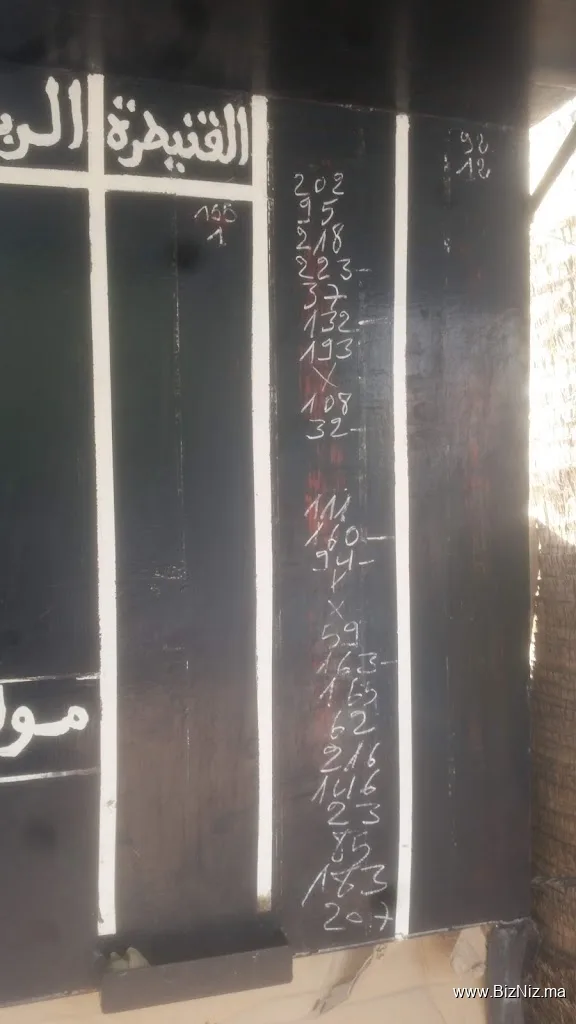 القنيطرة
155
1
202
95
218
223-
37
132-
193
X
108
32-
111
160-
94-
X
59
163-
165
62
216
146
23
85
183
207
92
12
www.BizNiz.ma